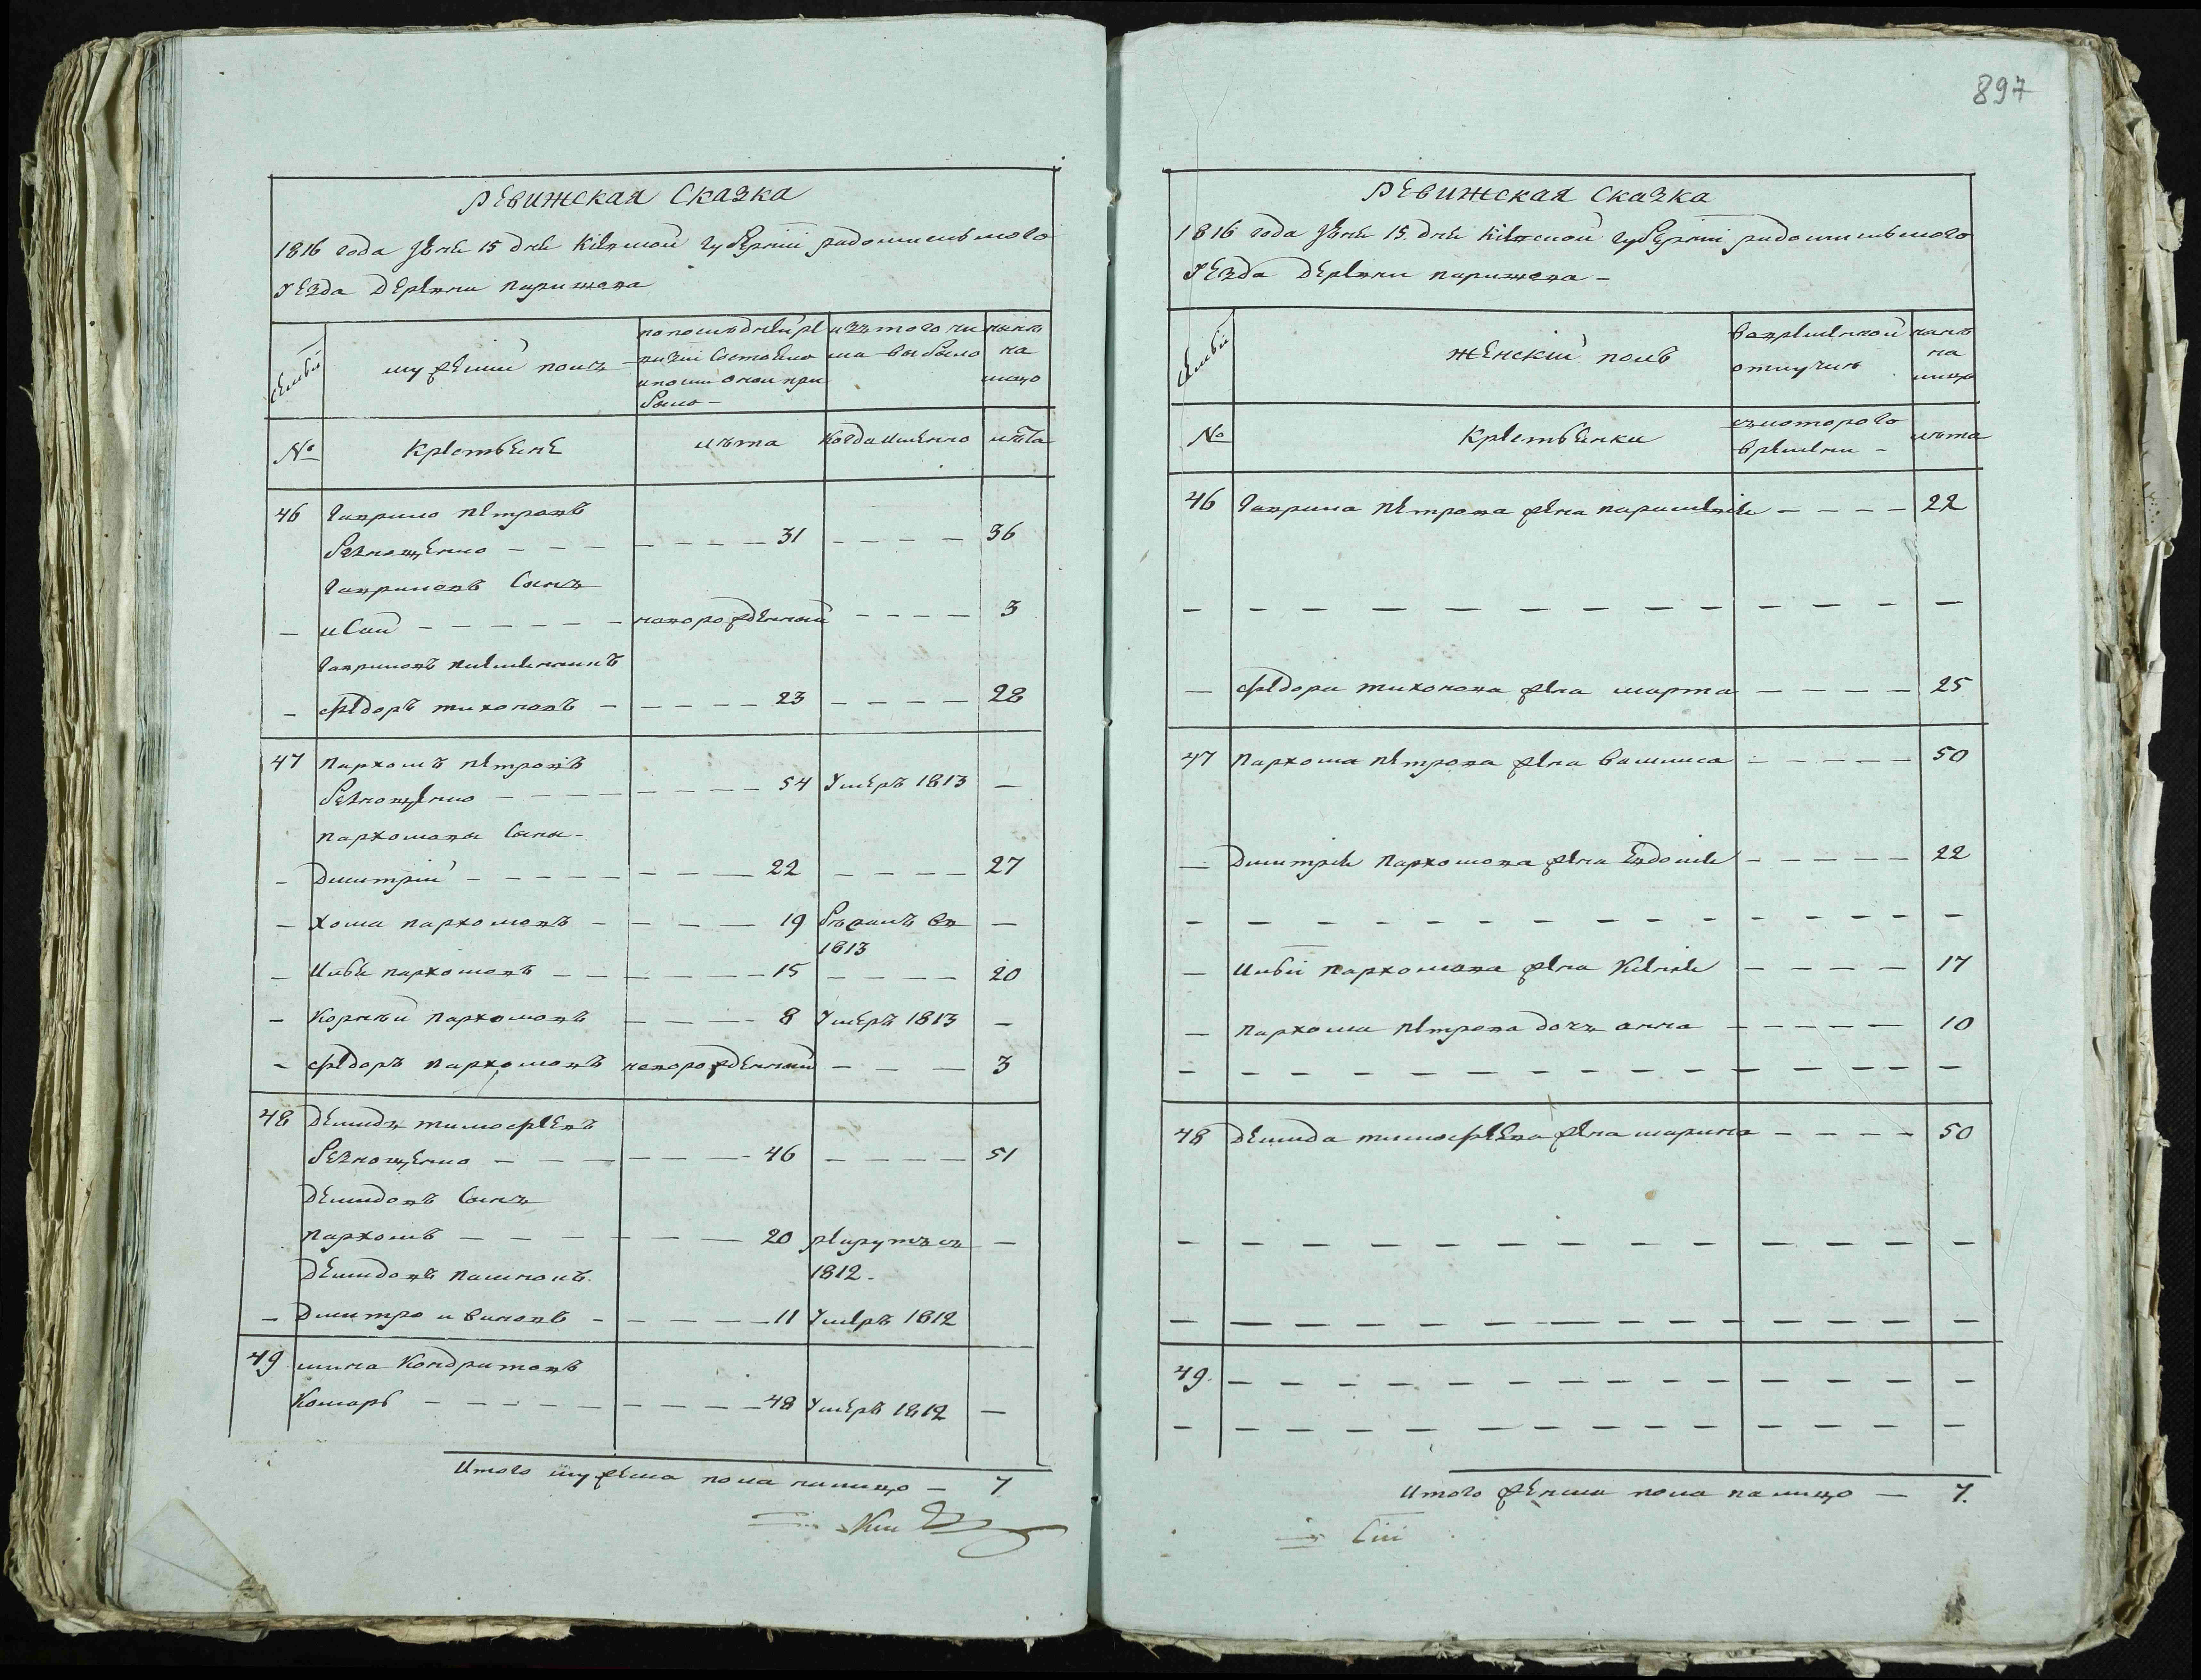 897
РЕВИЖСКАЯ СКАЗКА
1816 года Юня 15 дня Кіевской губерніи радомысльского
уезда деревни парижова
семьи
мужеский полъ
по последней ре
визии состояло
и после оной при
было –
изъ того чи
сла выбыло
нынѣ
на
лицо
№
крестьяне
лѣта
когда именно
лѣта
46 Гаврило Петровъ
безнощенко – – – 31 – – – – 36
Гавриловъ Сынъ
– исай – – – новорожденный – – – – 3
Гавриловъ племенникъ
– Федоръ тихоновъ – – – – 23 – – – – 28
47 Пархомъ Петровъ
безнощенко – – – 54 Умеръ 1813 –
пархомовы Сыны –
– Дмитрій – – – 22 – – – – 27
– хома пархомовъ – – – 19 бежалъ въ –
1813
– Илья пархомовъ – – – 15 – – – – 20
– Корнѣй пархомовъ – – – 8 Умеръ 1813 –
– Федоръ пархомовъ новорожденный – – – 3
48 Демидъ тимофеевъ
безнощенко – – – 46 – – – – 51
Демидовъ Сынъ
пархомъ – – – 20 рекрутъ съ –
1812 –
Демидовъ
– Дмитро ивановъ – – – 11 Умеръ 1812
49 мина Кондратовъ
Комаръ – – – 48 Умеръ 1812 –
Итого мужеска пола налицо – 7
РЕВИЖСКАЯ СКАЗКА
1816 года Юня 15 дня Кіевской губерніи радомысльского
уезда деревни парижова –
семьи
женский полъ
во временной
отлучке
нынѣ
на
лицо
№
крестьянки
съ которого
времени –
лѣта
46 Гаврила Петрова жена – – – – 22
– – – – – – – – – – – –
– Федора тихонова жена марта – – – – 25
47 Пархома Петрова жена василиса – – – – – 50
– Дмитрія Пархомова жена Евдокія – – – – – 22
– – – – – – – – – – – –
– Ильи Пархомова жена Ксенія – – – – 17
– Пархома Петрова дочь анна – – – – – 10
– – – – – – – – – – – –
48 Демида тимофеева жена марина – – – – 50
– – – – – – – – – – – –
– – – – – – – – – – – –
49. – – – – – – – – – – –
– – – – – – – – – – – –
Итого женска пола налицо – 7.